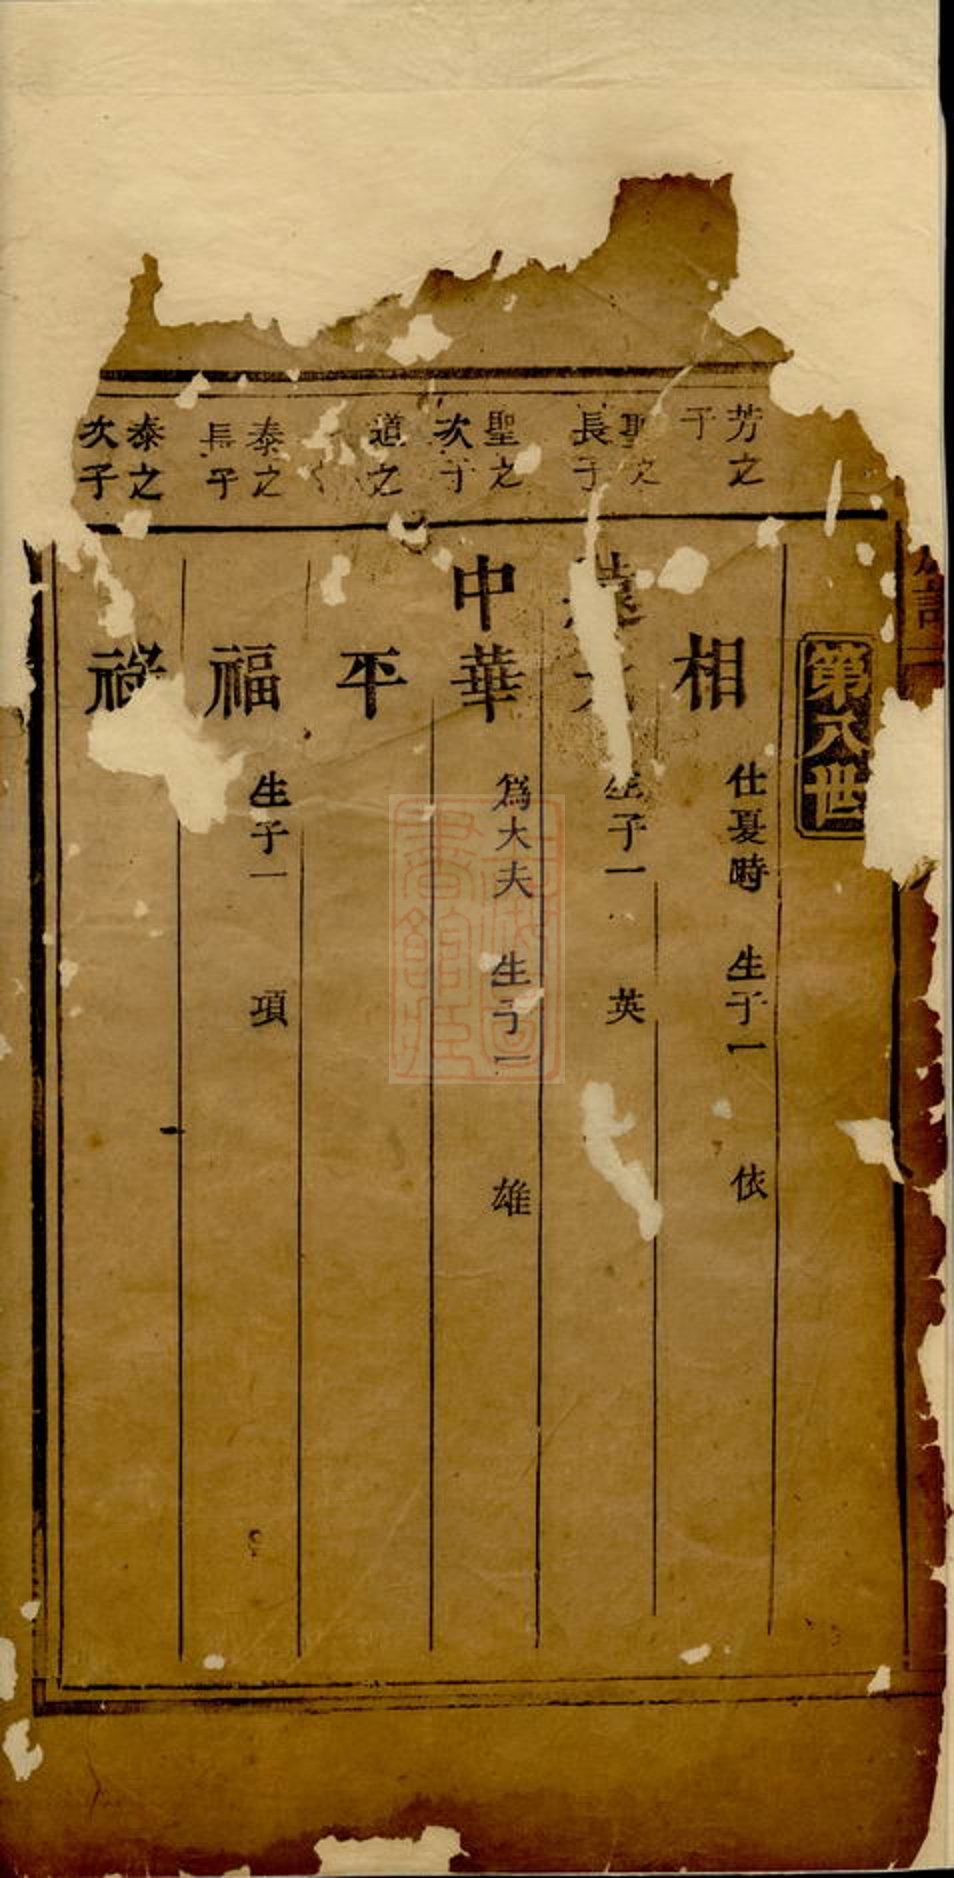 第八世
芳之
子
相
仕夏時 生子一 依
聖之
長子
遠
生子一 英
聖之
次子
中華
爲大夫 生子一 雄
道之
平
泰之
長子
福
生子一 項
泰之
次子
祿
上海圖書館藏